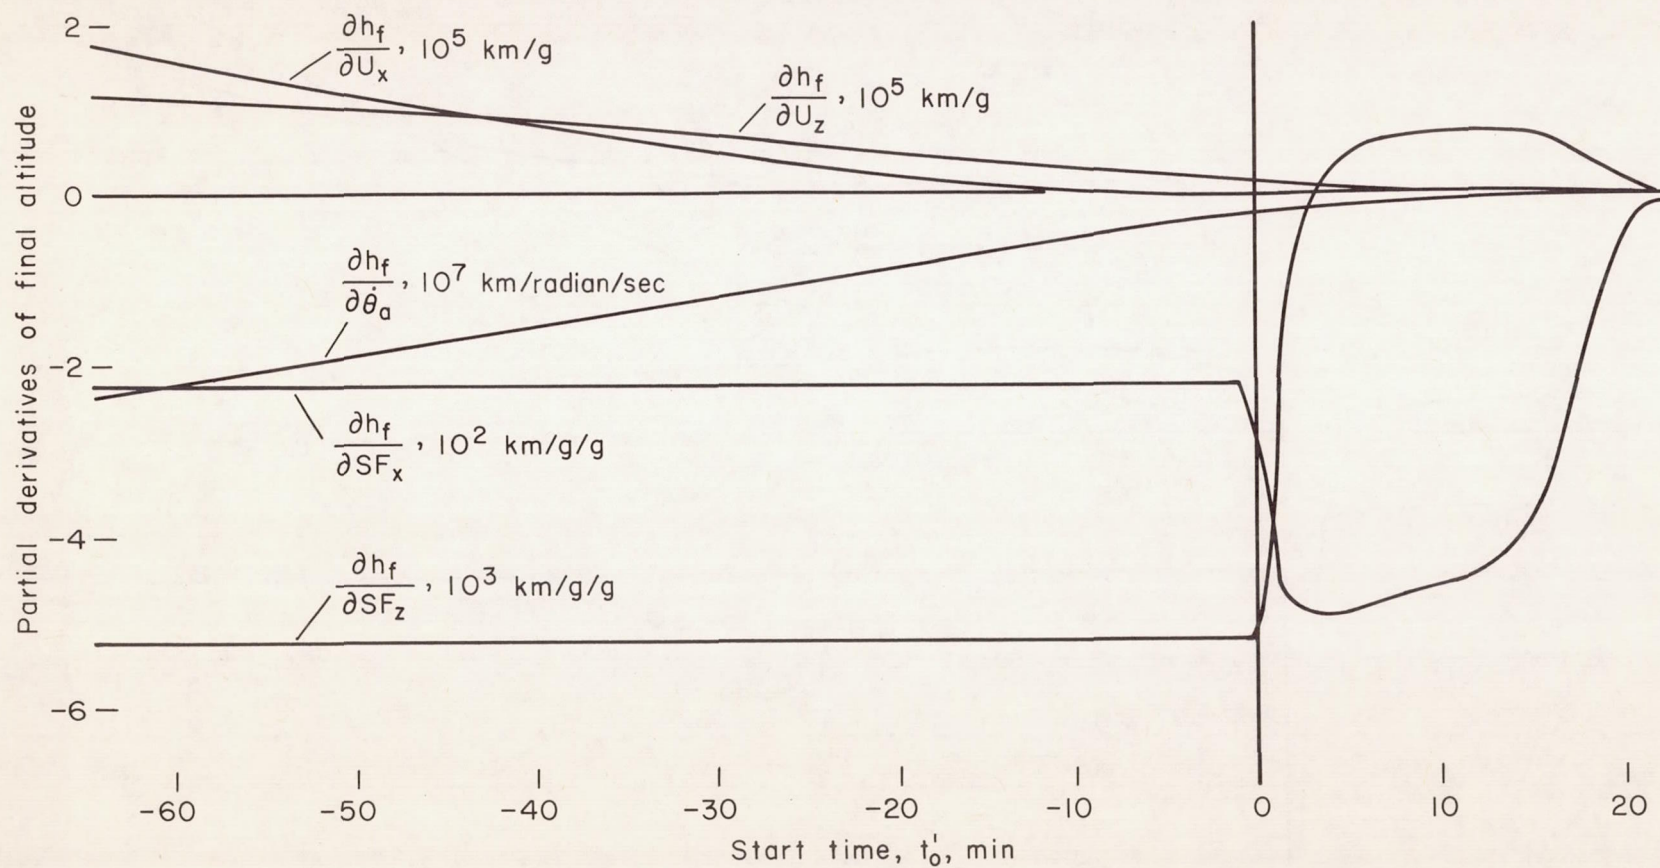 Partial derivatives of final altitude
2
0
-2
-4
-6
∂h_f/∂U_x, 10^5 km/g
∂h_f/∂U_z, 10^5 km/g
∂h_f/∂θ̇_a, 10^7 km/radian/sec
∂h_f/∂SF_x, 10^2 km/g/g
∂h_f/∂SF_z, 10^3 km/g/g
-60 -50 -40 -30 -20 -10 0 10 20
Start time, t'_o, min